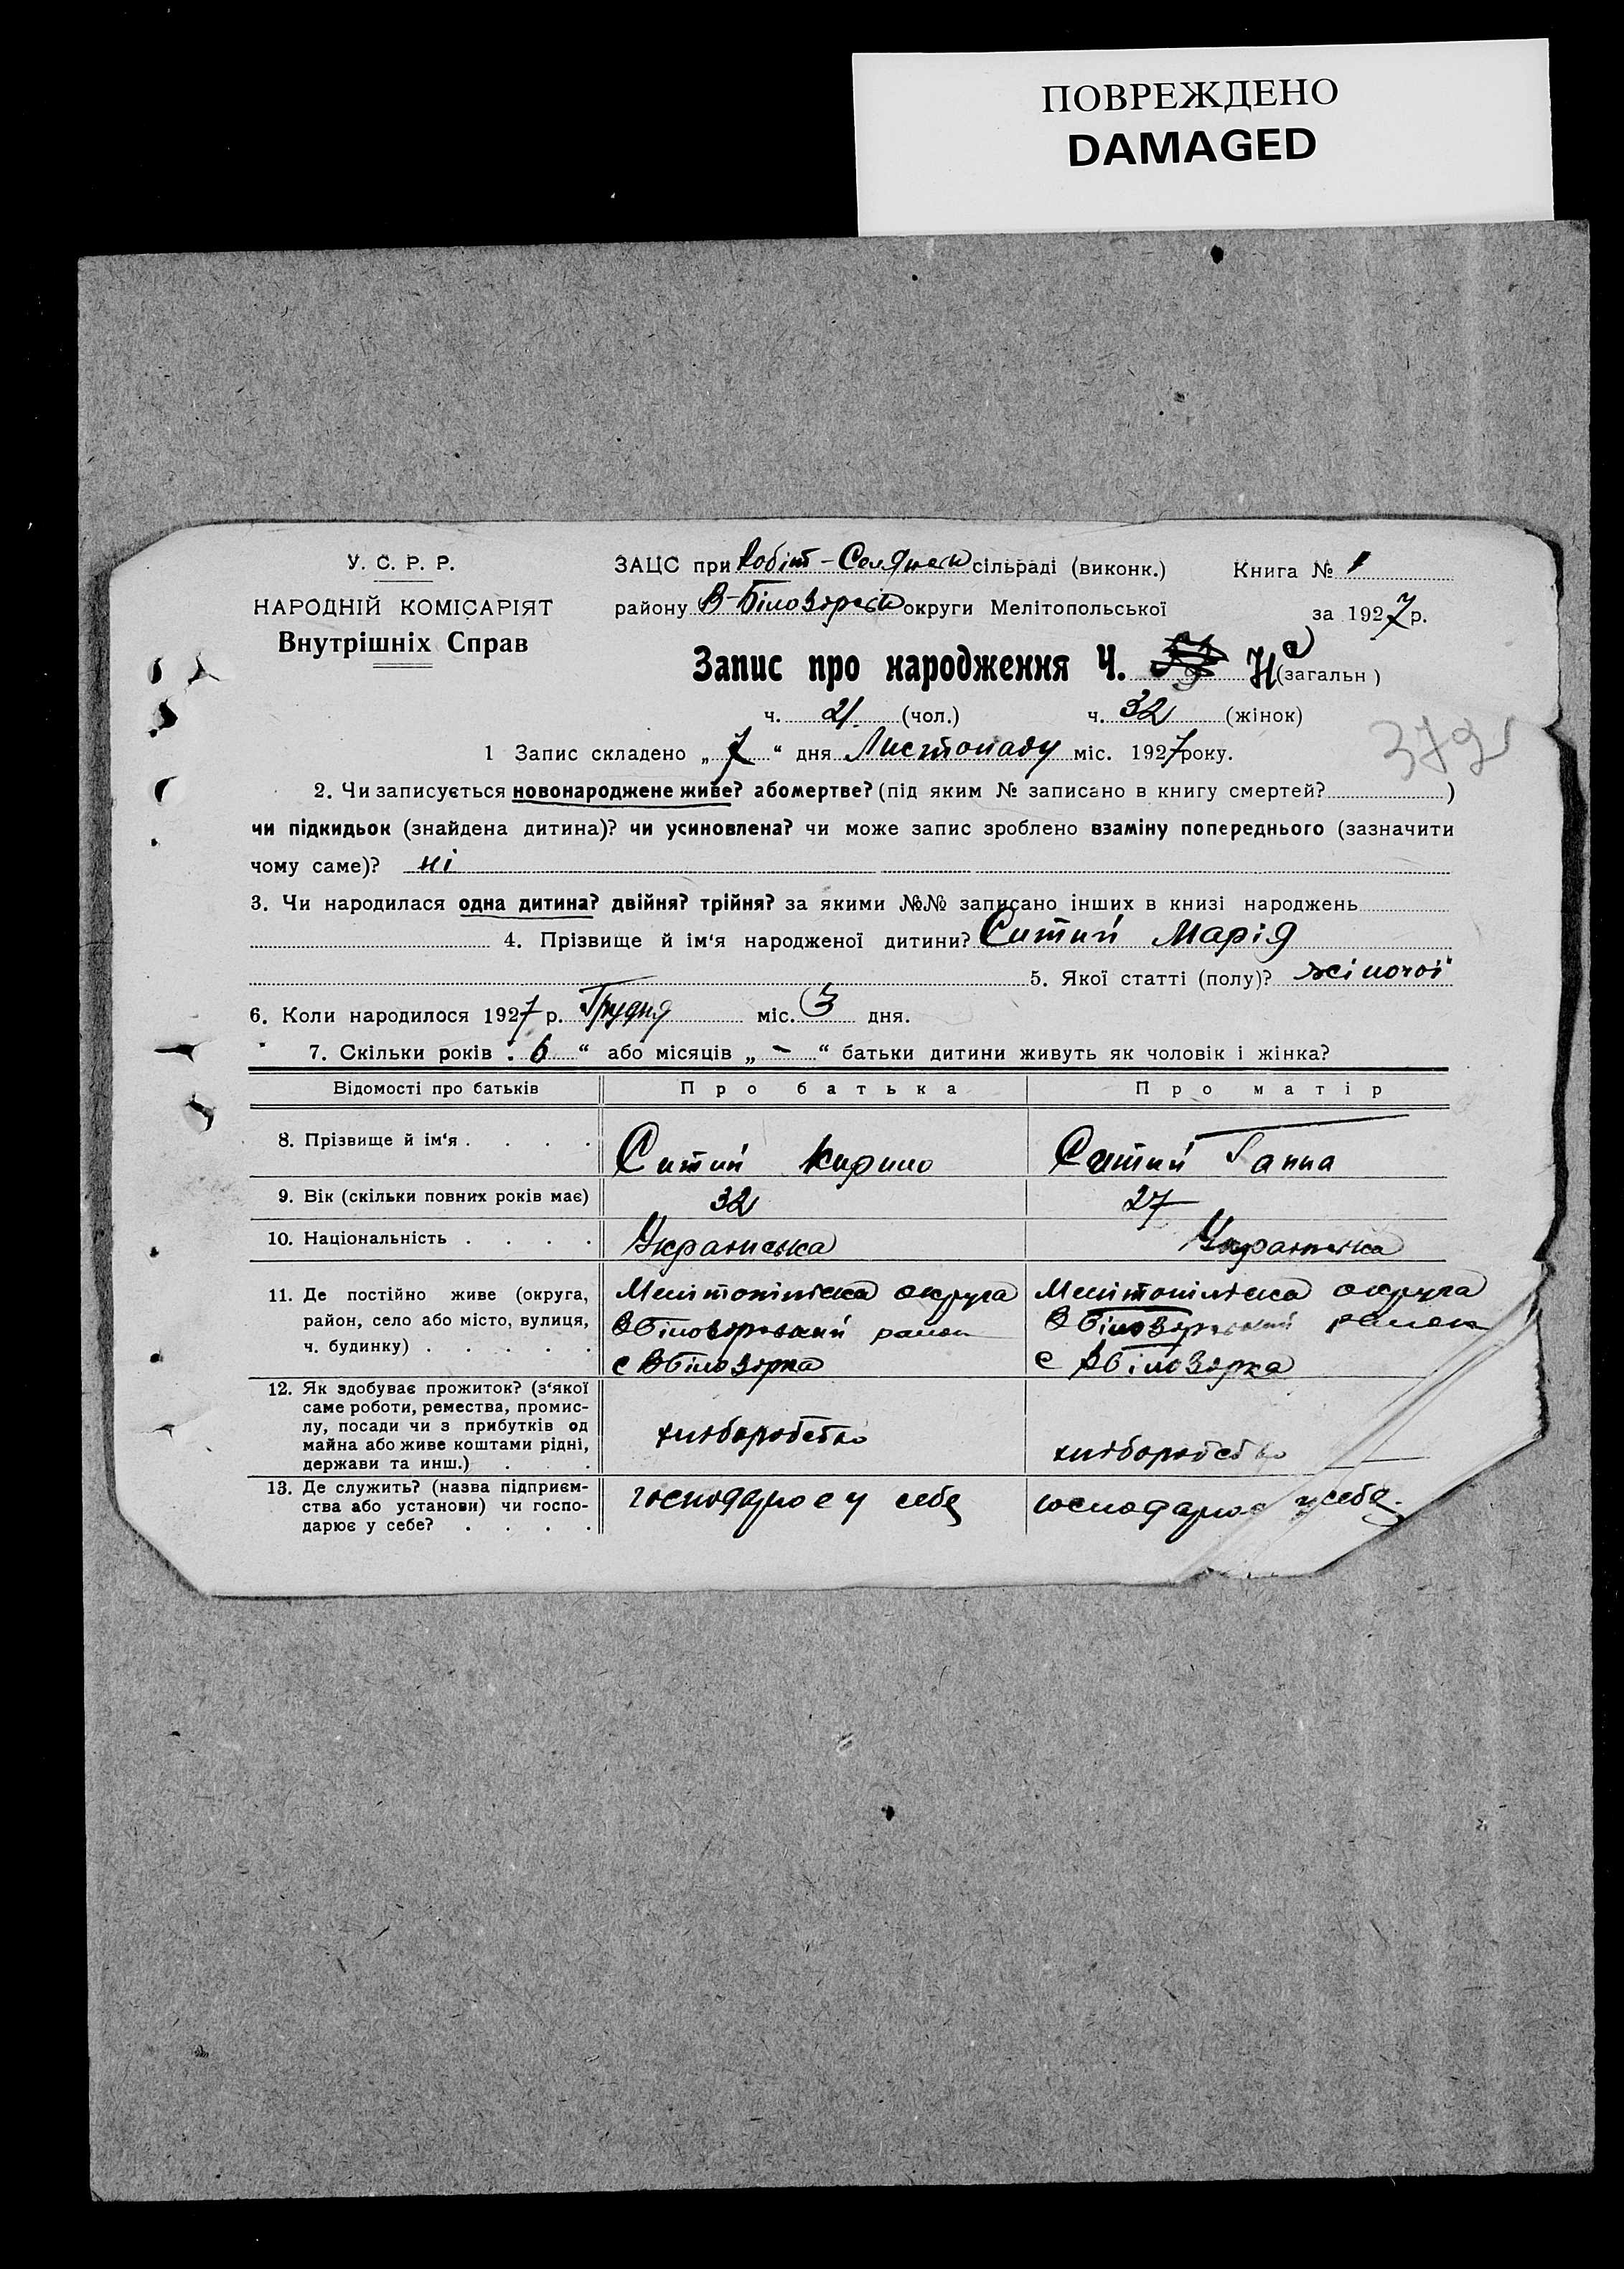 ПОВРЕЖДЕНО
DAMAGED
У. С. Р. Р.
НАРОДНІЙ КОМІСАРІЯТ
Внутрішніх Справ
ЗАЦС при Робіт-Селянськ сільраді (виконк.)
району В-Білозірськ округи Мелітопольської
Книга № 1
за 1927 р.
Запис про народження Ч. (загальн)
ч. 21 (чол.) ч. 32 (жінок)
1 Запис складено „7“ дня Листопаду міс. 1927 року.
379
2. Чи записується новонароджене живе? або мертве? (під яким № записано в книгу смертей? )
чи підкидьок (знайдена дитина)? чи усиновлена? чи може запис зроблено взаміну попереднього (зазначити
чому саме)? ні
3. Чи народилася одна дитина? двійня? трійня? за якими №№ записано інших в книзі народжень
4. Прізвище й ім'я народженої дитини? Ситий Марія
5. Якої статті (полу)? жіночої
6. Коли народилося 1927 р. Грудня міс. 3 дня.
7. Скільки років „6“ або місяців „-“ батьки дитини живуть як чоловік і жінка?
Відомості про батьків Про батька Про матір
8. Прізвище й ім'я . . . . Ситий Кирило Ситий Ганна
9. Вік (скільки повних років має) 32 27
10. Національність . . . . Украінська Украінська
11. Де постійно живе (округа,
район, село або місто, вулиця,
ч. будинку) . . . . .
Мелітопільска округа
ВБілозорський район
с ВБілозорка
Мелітопільска округа
ВБілозорський район
с ВБілозорка
12. Як здобуває прожиток? (з'якої
саме роботи, ремества, промис-
лу, посади чи з прибутків од
майна або живе коштами рідні,
держави та инш.) . . .
хліборобство
хліборобство
13. Де служить? (назва підприєм-
ства або установи) чи госпо-
дарює у себе? . . . .
господарює у себе
господарює у себе.